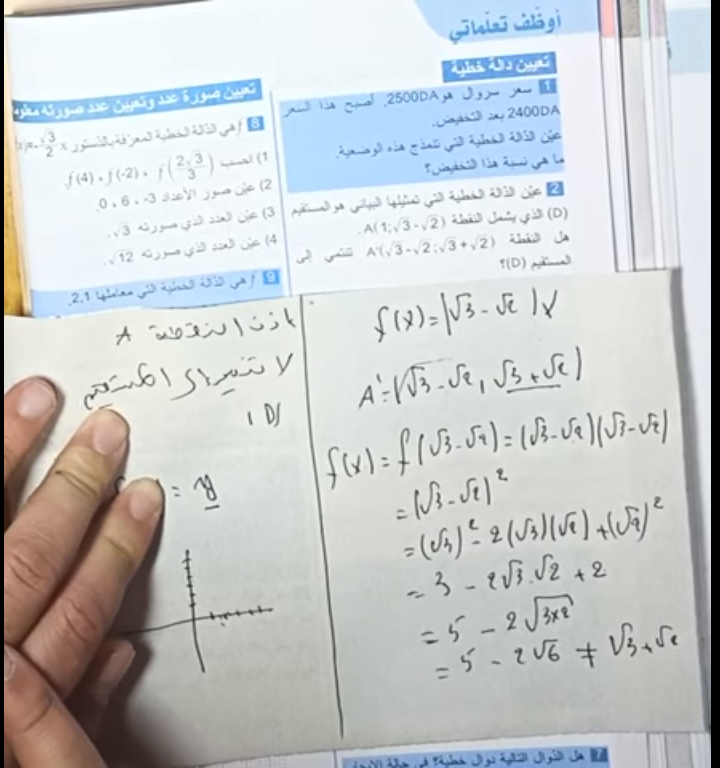 أوظف تعلماتي
تعيين دالة خطية
1 سعر سروال هو 2500DA. أصبح هذا السعر
2400DA بعد التخفيض.
عيّن الدالة الخطية التي تنمذج هذه الوضعية.
ما هي نسبة هذا التخفيض؟
2 عيّن الدالة الخطية التي تمثيلها البياني هو المستقيم
(D) الذي يشمل النقطة A(1;√3-√2).
هل النقطة A'(√3-√2;√3+√2) تنتمي إلى
المستقيم (D)؟
تعيين صورة عدد وتعيين عدد صورته
8 f هي الدّالة الخطية المعرّفة بالدّستور x √3/2
1) احسب f(2√3/3) ، f(-2) ، f(4).
2) عيّن صور الأعداد 3- ، 6 ، 0.
3) عيّن العدد الذي صورته √3.
4) عيّن العدد الذي صورته √12.
9 f هي الدّالة الخطية التي معاملها 2,1.
f(x)=(√3-√2)x
A'=(√3-√2, √3+√2)
f(x)=f(√3-√2)=(√3-√2)(√3-√2)
=(√3-√2)²
=(√3)²-2(√3)(√2)+(√2)²
=3-2√3.√2+2
=5-2√(3×2)
=5-2√6≠√3+√2
إذن النقطة A
لا تنتمي إلى المستقيم
(D)
= y
7 هل الدّوال التالية دوال خطية؟ في حالة